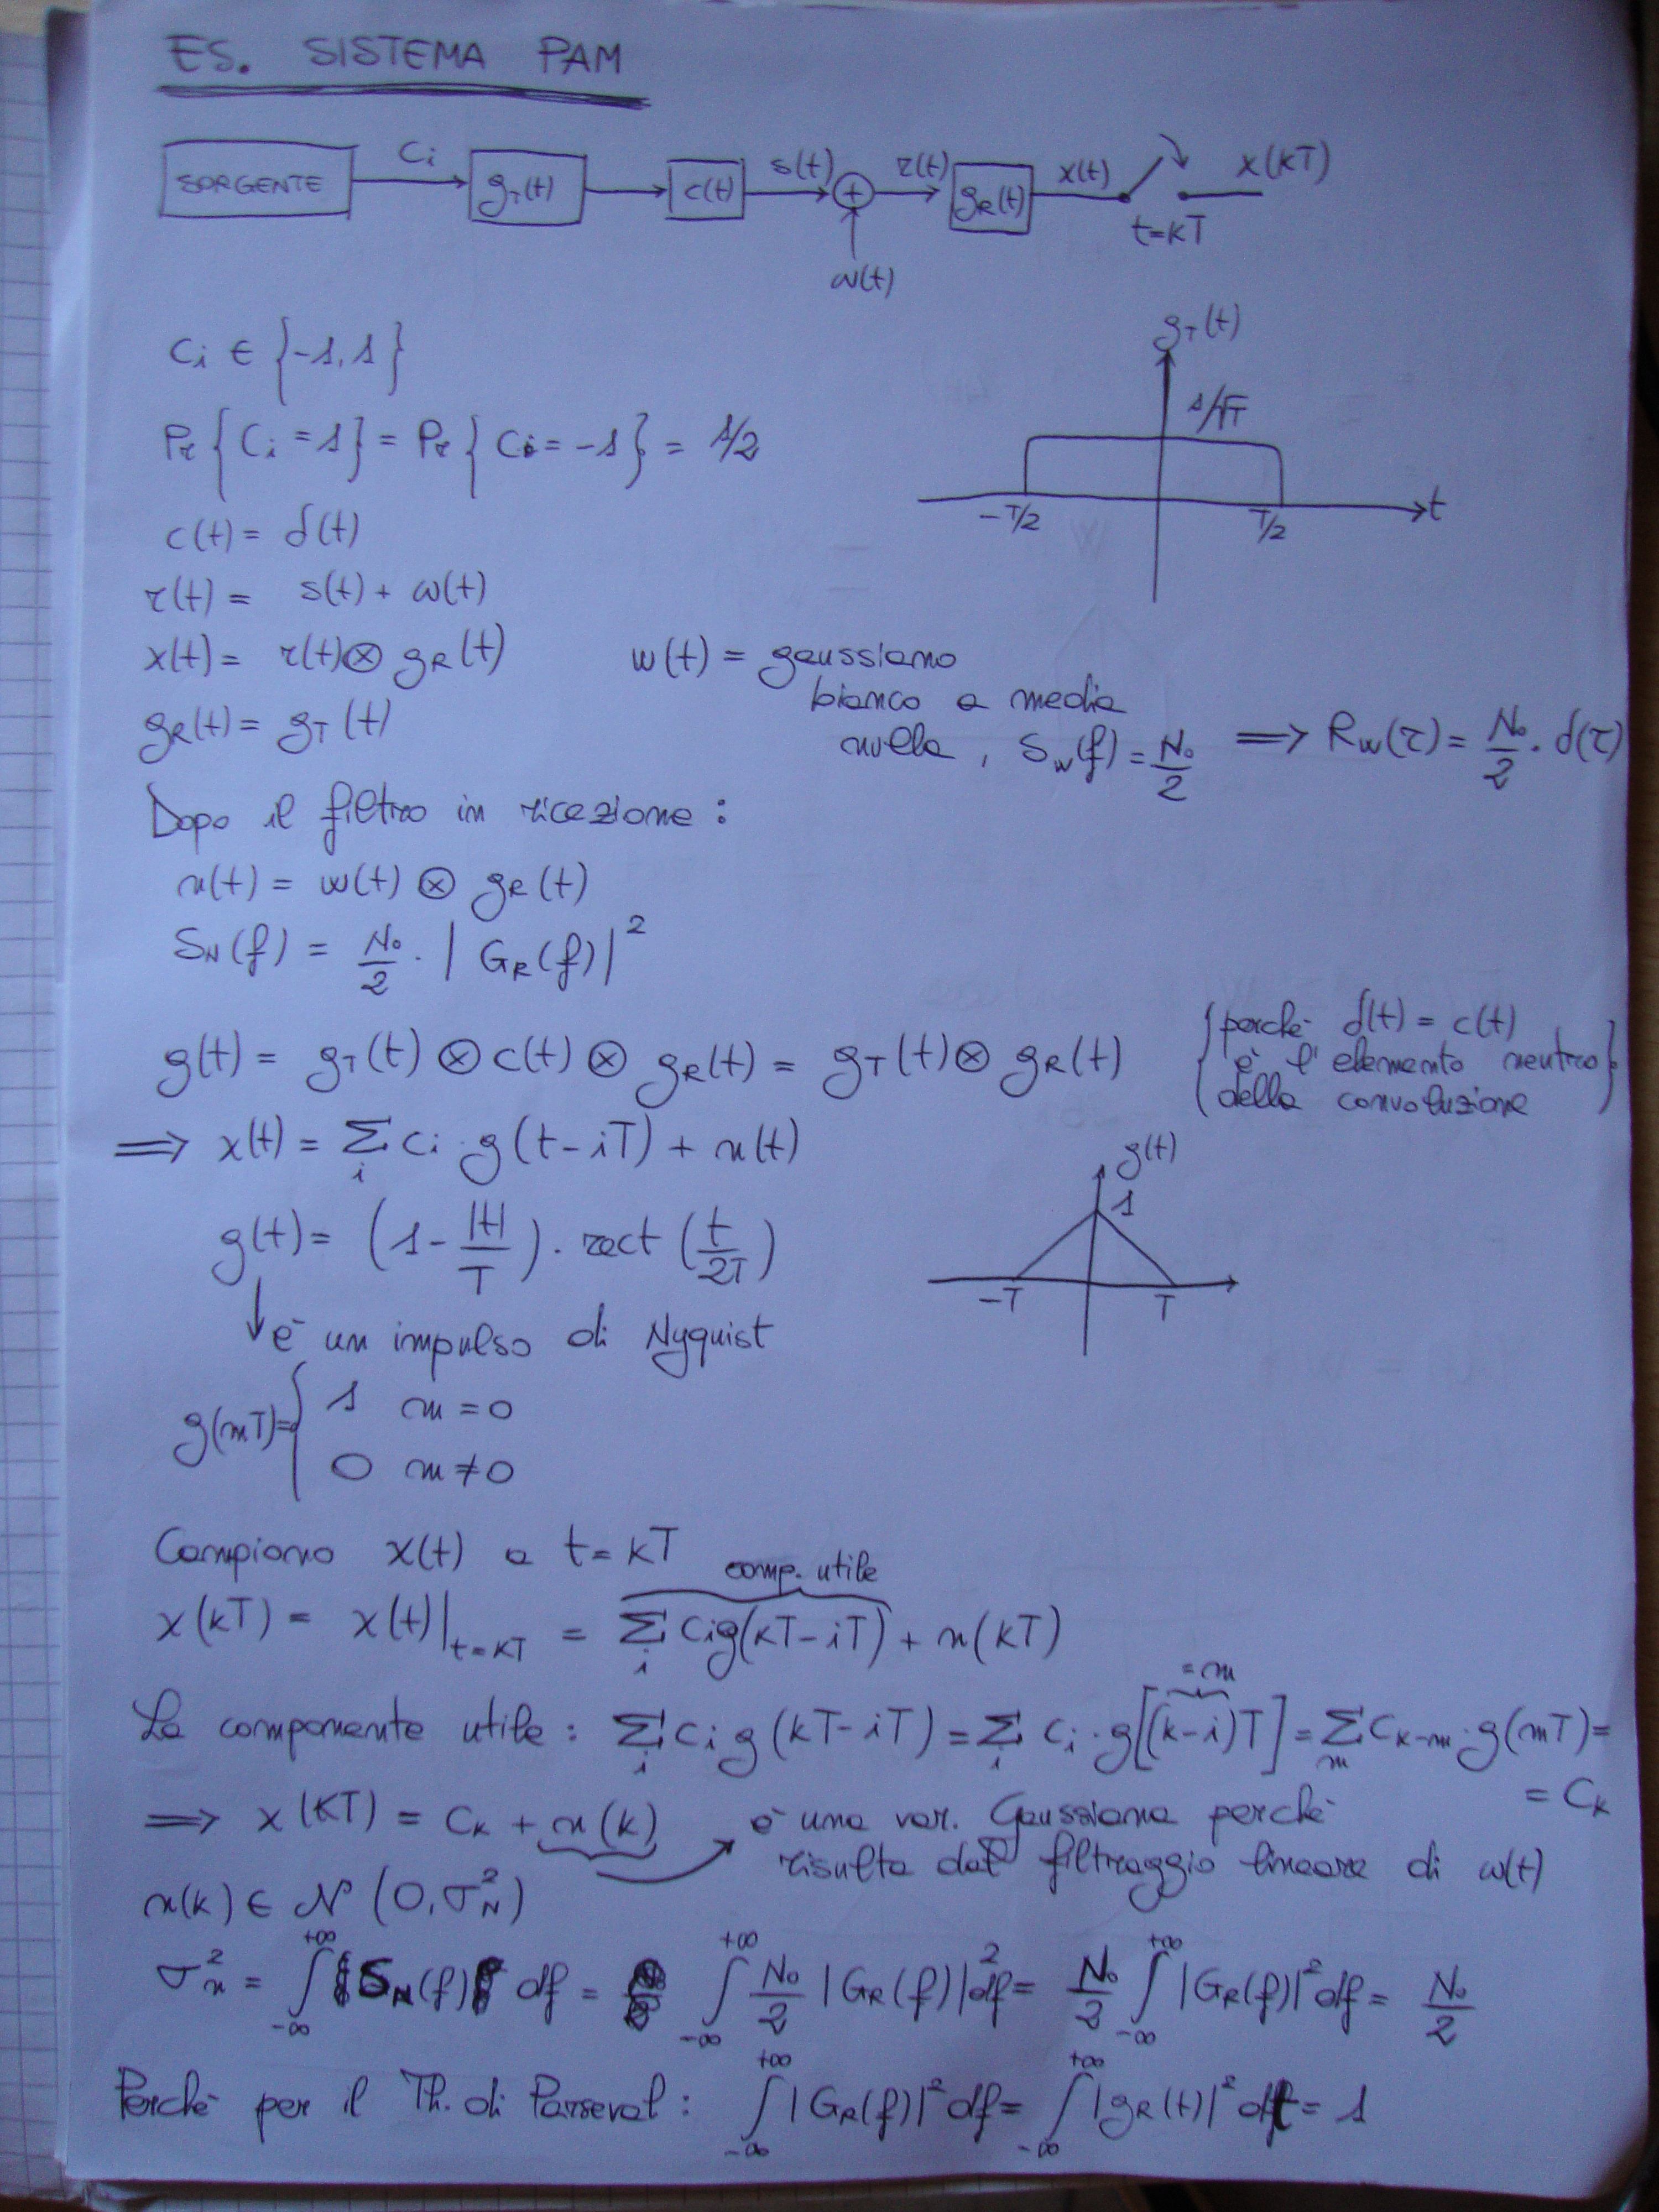 ES. SISTEMA PAM
SORGENTE Ci gT(t) c(t) s(t) + r(t) gR(t) x(t) x(kT)
t=kT
w(t)
Ci ∈ {-1, 1}
gT(t)
1/√T
-T/2 T/2 t
Pr { Ci = 1} = Pr { Ci = -1} = 1/2
c(t) = δ(t)
r(t) = s(t) + w(t)
x(t) = r(t) ⊗ gR(t)
gR(t) = gT(t)
w(t) = gaussiano
bianco a media
nulla, Sw(f) = No/2 ⟹ Rw(τ) = No/2 · δ(τ)
Dopo il filtro in ricezione:
n(t) = w(t) ⊗ gR(t)
SN(f) = No/2 · |GR(f)|²
g(t) = gT(t) ⊗ c(t) ⊗ gR(t) = gT(t) ⊗ gR(t)
{perchè δ(t) = c(t)
è l'elemento neutro
della convoluzione}
⟹ x(t) = Σi Ci · g(t-iT) + n(t)
g(t) = (1 - |t|/T) · rect (t/2T)
g(t)
1
-T T
↓ è un impulso di Nyquist
g(mT) = { 1 m = 0
0 m ≠ 0
Campiono x(t) a t = kT
comp. utile
x(kT) = x(t)|t=kT = Σi Ci g(kT-iT) + n(kT)
= m
La componente utile: Σi Ci g(kT-iT) = Σi Ci · g[(k-i)T] = Σm Ck-m · g(mT) =
= Ck
⟹ x(kT) = Ck + n(k) → è una var. Gaussiana perchè
risulta dal filtraggio lineare di w(t)
n(k) ∈ N (0, σ²N)
σ²n = ∫-∞+∞ SN(f) df = ∫-∞+∞ No/2 |GR(f)|² df = No/2 ∫-∞+∞ |GR(f)|² df = No/2
Perchè per il Th. di Parseval: ∫-∞+∞ |GR(f)|² df = ∫-∞+∞ |gR(t)|² dt = 1